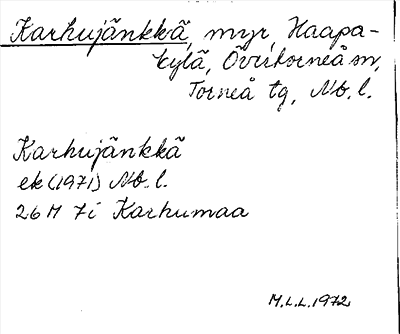 Karhujänkkä, myr, Haapa-
kylä, Övertorneå sn,
Torneå tg, Nb. l.
Karhujänkkä
ek (1971) Nb. l.
26 M 7i Karhumaa
M.L.L. 1972